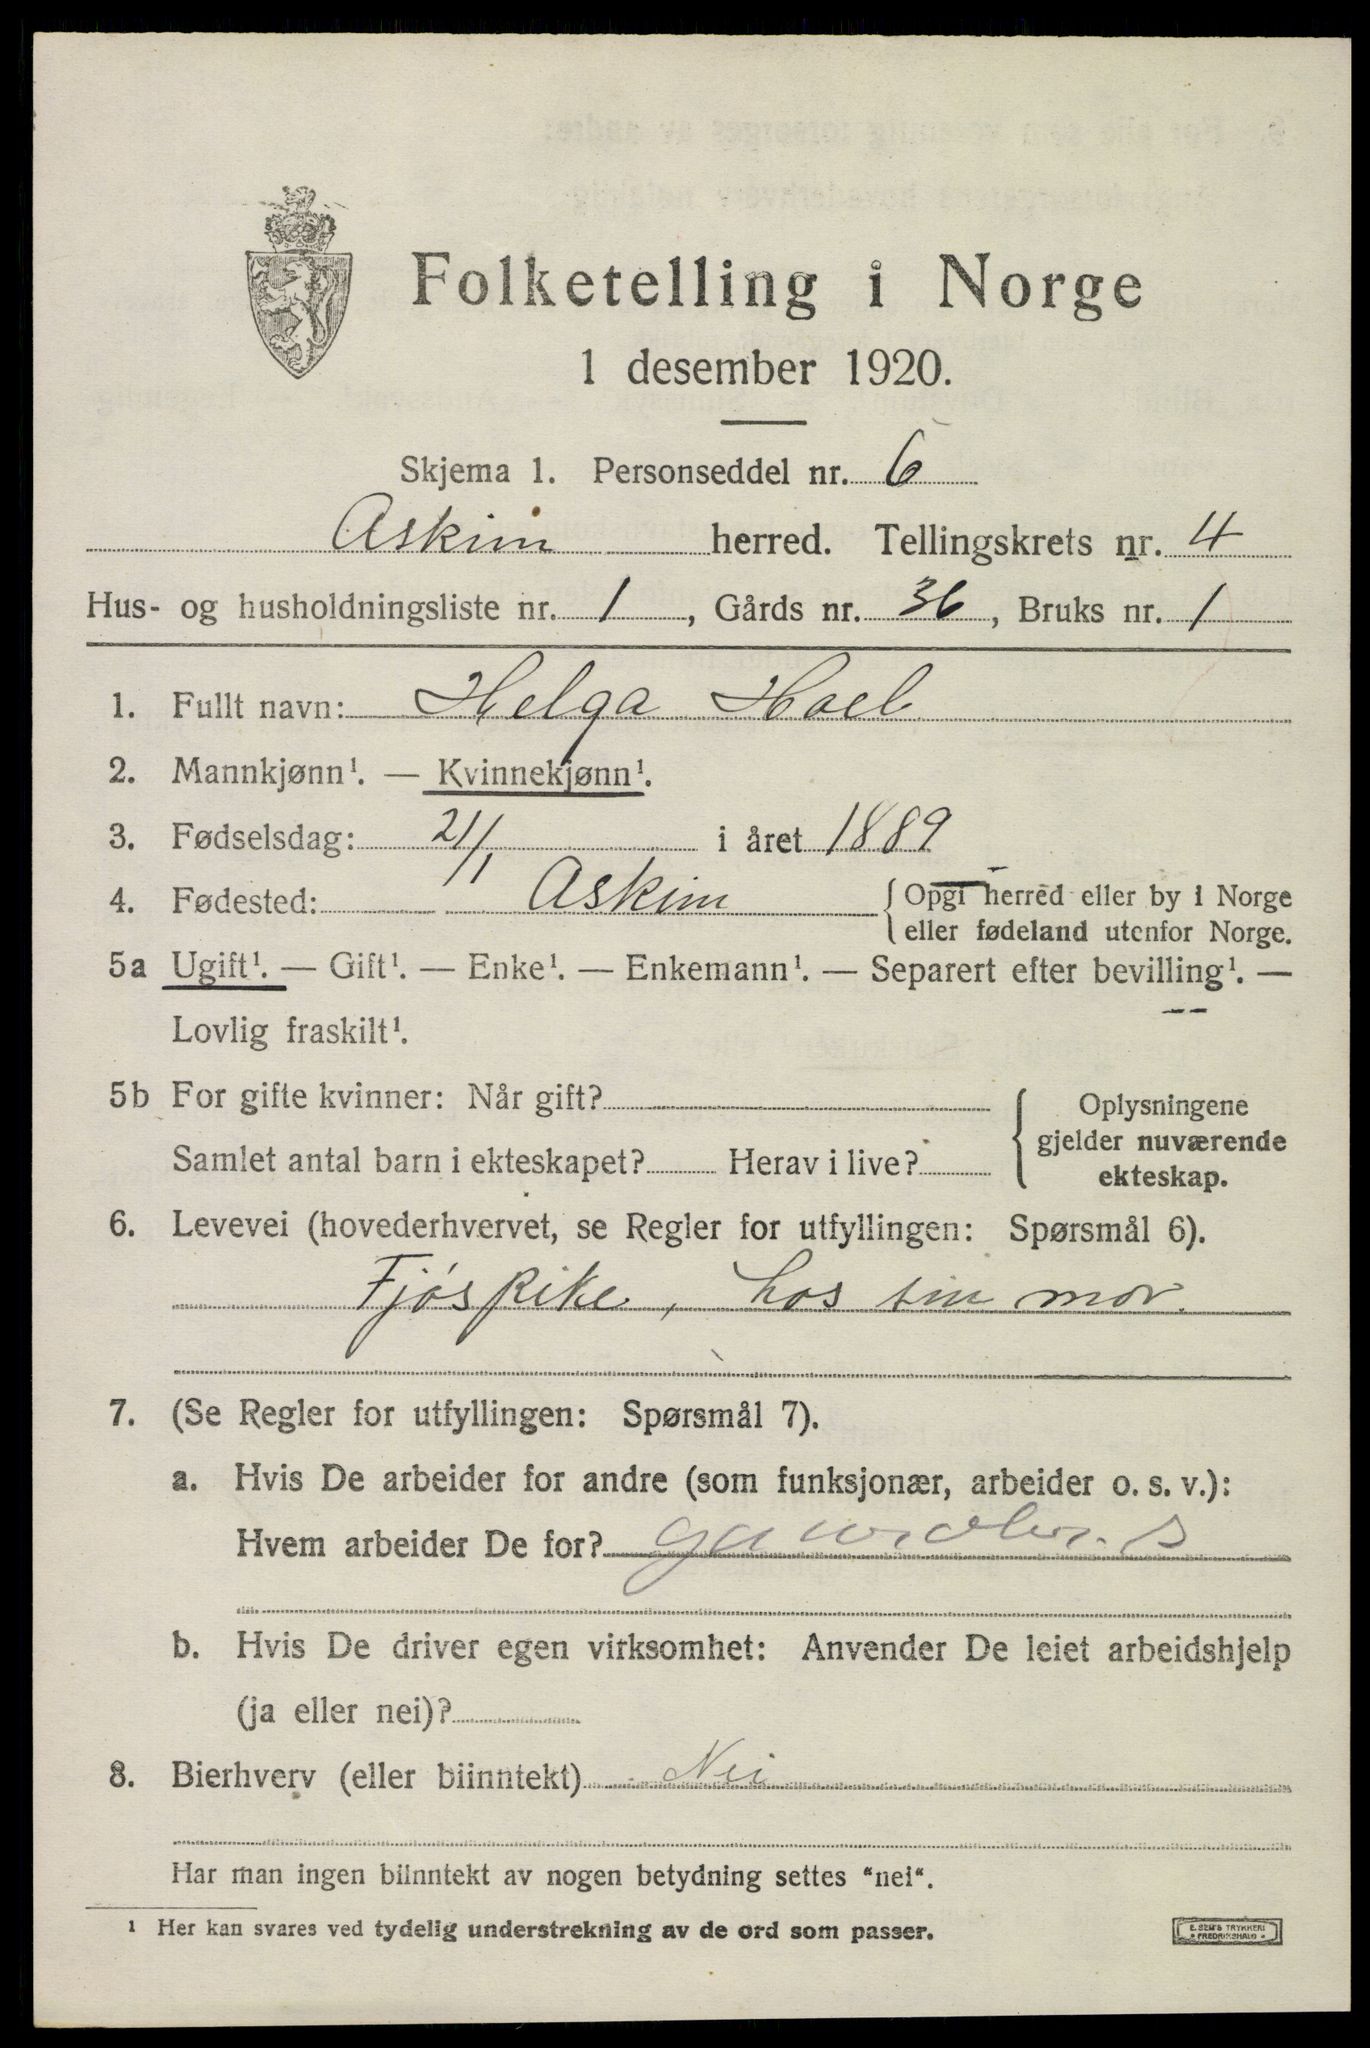 Folketelling i Norge
1 desember 1920.
Skjema 1. Personseddel nr. 6
Askim herred. Tellingskrets nr. 4
Hus- og husholdningsliste nr. 1, Gårds nr. 36, Bruks nr. 1
1. Fullt navn: Helga Hoel
2. Mannkjønn¹. — Kvinnekjønn¹.
3. Fødselsdag: 21/1 i året 1889
4. Fødested: Askim { Opgi herred eller by i Norge
eller fødeland utenfor Norge.
5a Ugift¹. — Gift¹. — Enke¹. — Enkemann¹. — Separert efter bevilling¹. —
Lovlig fraskilt¹.
5b For gifte kvinner: Når gift?
Samlet antal barn i ekteskapet? Herav i live?
Oplysningene
gjelder nuværende
ekteskap.
6. Levevei (hovederhvervet, se Regler for utfyllingen: Spørsmål 6).
Fjøspike, hos sin mor.
7. (Se Regler for utfyllingen: Spørsmål 7).
a. Hvis De arbeider for andre (som funksjonær, arbeider o. s. v.):
Hvem arbeider De for?
b. Hvis De driver egen virksomhet: Anvender De leiet arbeidshjelp
(ja eller nei)?
8. Bierhverv (eller biinntekt) Nei
Har man ingen biinntekt av nogen betydning settes "nei".
¹ Her kan svares ved tydelig understrekning av de ord som passer.
E. SEM'S TRYKKERI
• FREDRIKSHALD •